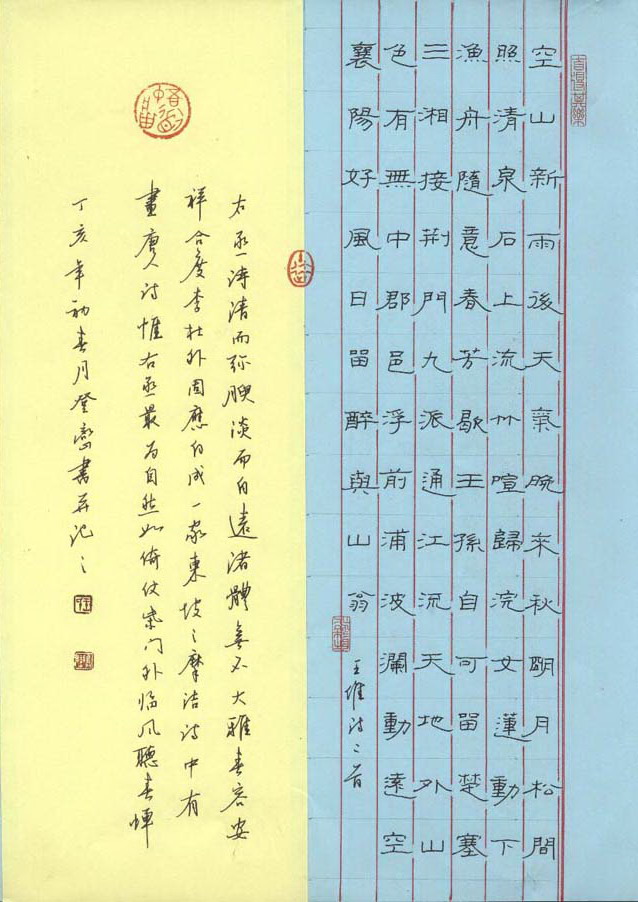 空山新雨後天氣晚来秋明月松間
照清泉石上流竹喧歸浣女蓮動下
漁舟隨意春芳歇王孫自可留楚塞
三湘接荆門九派通江流天地外山
色有無中郡邑浮前浦波瀾動遠空
襄陽好風日留醉與山翁
王維诗二首
右丞诗清而弥腴淡而自遠诸體無不大雅春容安
祥合度李杜外固應自成一家東坡云摩诘诗中有
畫唐人诗惟右丞最为自然如倚仗柴门外临风聽暮蝉
丁亥年初春月登書并记之